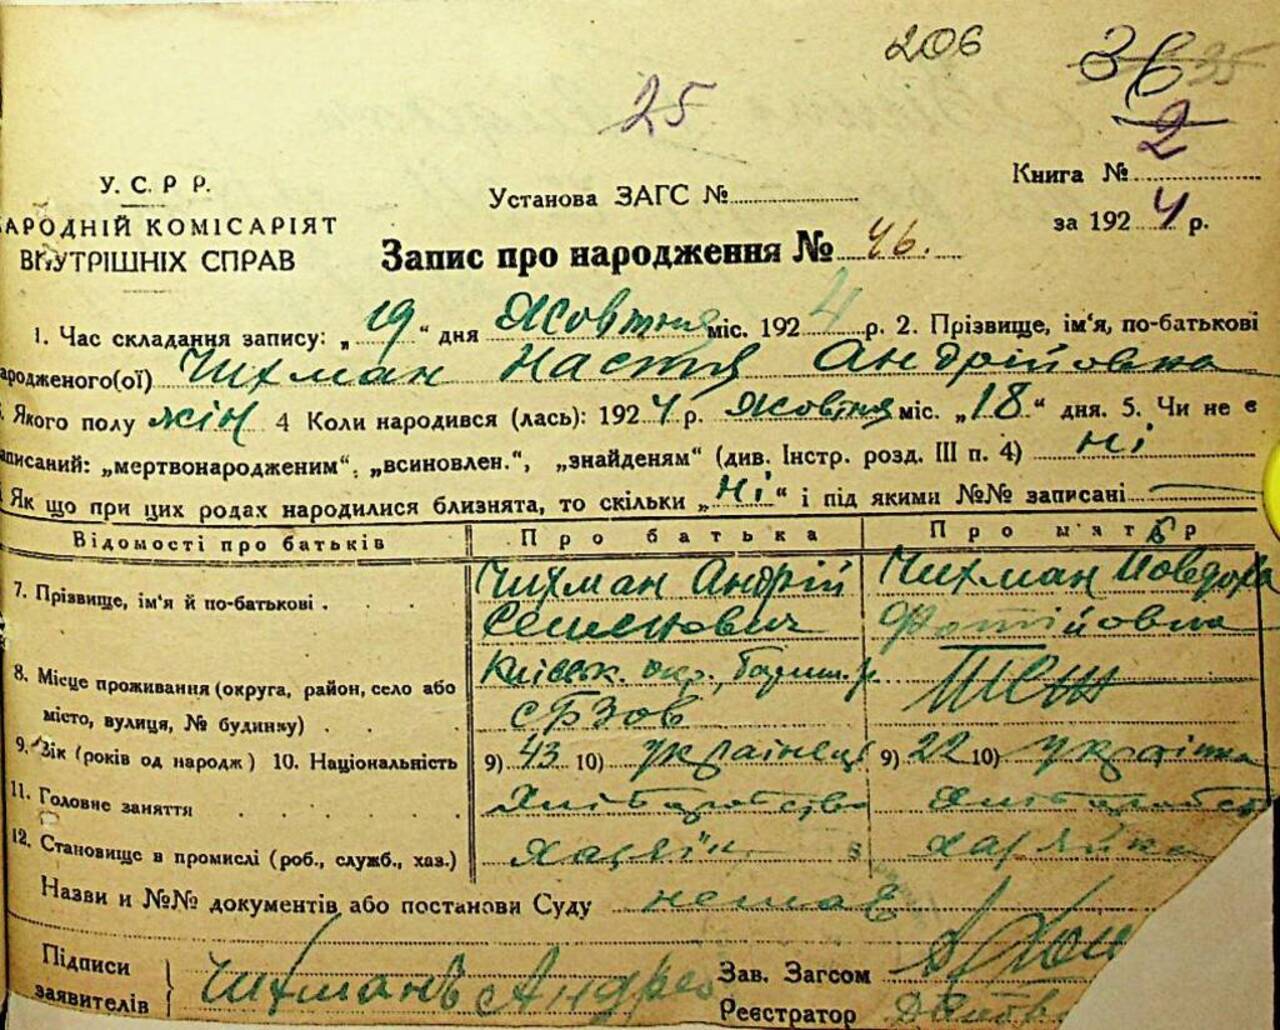 206
36 35
25
2
У. С. Р Р.
АРОДНІЙ КОМІСАРІЯТ
ВНУТРІШНІХ СПРАВ
Установа ЗАГС №
Книга №
за 1924 р.
Запис про народження № 46.
1. Час складання запису: „19“ дня Жовтня міс. 1924 р. 2. Прізвище, ім'я, по-батькові
ародженого(ої) Чихман Настя Андрійовна
Якого полу жін 4 Коли народився (лась): 1924 р. жовтня міс. „18“ дня. 5. Чи не є
аписаний: „мертвонародженим“, „всиновлен.“, „знайденям“ (див. Інстр. розд. III п. 4) ні
Як що при цих родах народилися близнята, то скільки „ні“ і під якими №№ записані
Відомості про батьків Про батька Про матір
7. Прізвище, ім'я й по-батькові . Чихман Андрій Семенович Чихман Фотійовна
8. Місце проживання (округа, район, село або місто, вулиця, № будинку) . Київськ. окр., р. теж
9. Вік (років од народж) 10. Національність 9) 43 10) українець 9) 22 10) українка
11. Головне заняття хліборобство
12. Становище в промислі (роб., служб., хаз.) хазяїн хазяйка
Назви и №№ документів або постанови Суду немає
Підписи заявителів Чихманъ Андрео
Зав. Загсом
Реєстратор